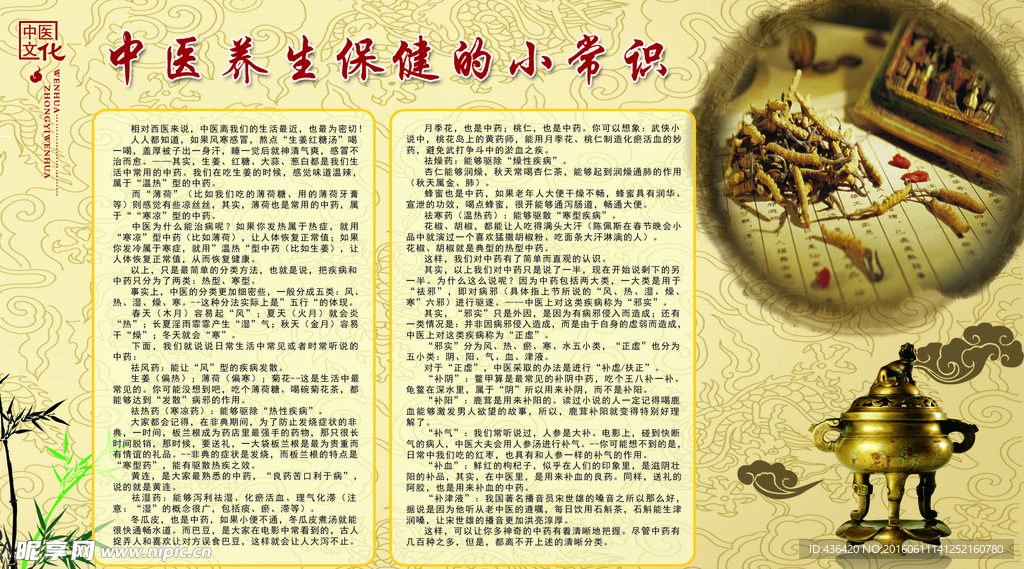 中医
文化
WENHUA
ZHONGYIWENHUA
中医养生保健的小常识
相对西医来说，中医离我们的生活最近，也最为密切！
人人都知道，如果风寒感冒，熬点“生姜红糖汤”喝
一喝，盖厚被子出一身汗，睡一觉后就神清气爽，感冒不
治而愈。——其实，生姜、红糖、大蒜、葱白都是我们生
活中常用的中药。我们在吃生姜的时候，感觉味道温辣，
属于“温热”型的中药。
而“薄荷”（比如我们吃的薄荷糖、用的薄荷牙膏
等）则感觉有些凉丝丝，其实，薄荷也是常用的中药，属
于““寒凉”型的中药。
中医为什么能治病呢？如果你发热属于热症，就用
“寒凉”型中药（比如薄荷），让人体恢复正常值；如果
你发冷属于寒症，就用”温热“型中药（比如生姜），让
人体恢复正常值，从而恢复健康。
以上，只是最简单的分类方法，也就是说，把疾病和
中药只分为了两类：热型、寒型。
事实上，中医的分类更加细密些，一般分成五类：风、
热、湿、燥、寒。--这种分法实际上是”五行“的体现。
春天（木月）容易起“风”；夏天（火月）就会炎
“热”；长夏淫雨霏霏产生“湿”气；秋天（金月）容易
干“燥”；冬天就会“寒”。
下面，我们就说说日常生活中常见或者时常听说的
中药：
祛风药：能让“风”型的疾病发散。
生姜（偏热）；薄荷（偏寒）；菊花--这是生活中最
常见的。你可能没想到吧，吃个薄荷糖、喝碗菊花茶，都
能够达到“发散”病邪的作用。
祛热药（寒凉药）：能够驱除“热性疾病”。
大家都会记得，在非典期间，为了防止发烧症状的非
典，一时间，板兰根成为药店里最强手的药物，那只很长
时间脱销，那时候，要送礼，一大袋板兰根是最为贵重而
有情谊的礼品。--非典的症状是发烧，而板兰根的特点是
“寒型药”，能有驱散热疾之效。
黄连，是大家最熟悉的中药，“良药苦口利于病”，
说的就是黄连。
祛湿药：能够泻利祛湿、化瘀活血、理气化滞（注
意：“湿”的概念很广，包括痰、瘀、滞等）。
冬瓜皮，也是中药，如果小便不通，冬瓜皮煮汤就能
很快通畅水道。而巴豆，是大家在电影中常看到的，古人
捉弄人和喜欢让对方误食巴豆，这样就会让人大泻不止。
月季花，也是中药；桃仁，也是中药。你可以想象：武侠小
说中，桃花岛上的黄药师，能用月季花、桃仁制造化瘀活血的妙
药，避免武打争斗中的淤血之疾。
祛燥药：能够驱除“燥性疾病”。
杏仁能够润燥，秋天常喝杏仁茶，能够起到润燥通肺的作用
（秋天属金、肺）。
蜂蜜也是中药，如果老年人大便干燥不畅，蜂蜜具有润华、
宣泄的功效，喝点蜂蜜，很开能够通泻肠道，畅通大便。
祛寒药（温热药）：能够驱散“寒型疾病”。
花椒、胡椒，都能让人吃得满头大汗（陈佩斯在春节晚会小
品中就演过一个喜欢猛撒胡椒粉、吃面条大汗淋漓的人）。
花椒、胡椒就是典型的热型中药。
这样，我们对中药有了简单而直观的认识。
其实，以上我们对中药只是说了一半，现在开始说剩下的另
一半。为什么这么说呢？因为中药包括两大类，一大类是用于
“祛邪”，即对病邪（具体指上节所说的“风、热、湿、燥、
寒”六邪）进行驱逐。——中医上对这类疾病称为“邪实”。
其实，“邪实”只是外因，是因为有病邪侵入而造成；还有
一类情况是：并非因病邪侵入造成，而是由于自身的虚弱而造成，
中医上对这类疾病称为“正虚”。
“邪实”分为风、热、瘀、寒、水五小类，“正虚”也分为
五小类：阴、阳、气、血、津液。
对于“正虚”，中医采取的办法是进行“补虚/扶正”。
“补阴”：鳖甲算是最常见的补阴中药，吃个王八补一补。
龟鳖在深水里，属于“阴”所以用来补阴，而不是补阳。
“补阳”：鹿茸是用来补阳的。读过小说的人一定记得喝鹿
血能够激发男人欲望的故事，所以，鹿茸补阳就变得特别好理
解了。
“补气”：我们常听说过，人参是大补。电影上，碰到快断
气的病人，中医大夫会用人参汤进行补气。--你可能想不到的是，
日常中我们吃的红枣，也具有和人参一样的补气的作用。
“补血”：鲜红的枸杞子，似乎在人们的印象里，是滋阴壮
阳的补品，其实，在中医里，是用来补血的良药。同样，送礼的
阿胶，也是用来补血的中药。
“补津液”：我国著名播音员宋世雄的嗓音之所以那么好，
据说是因为他听从老中医的遵嘱，每日饮用石斛茶，石斛能生津
润嗓，让宋世雄的播音更加洪亮淳厚。
这样，可以让你多神奇的中药有着清晰地把握。尽管中药有
几百种之多，但是，都离不开上述的清晰分类。
昵享网 www.nipic.cn
ID:436420 NO:20160611141252160780